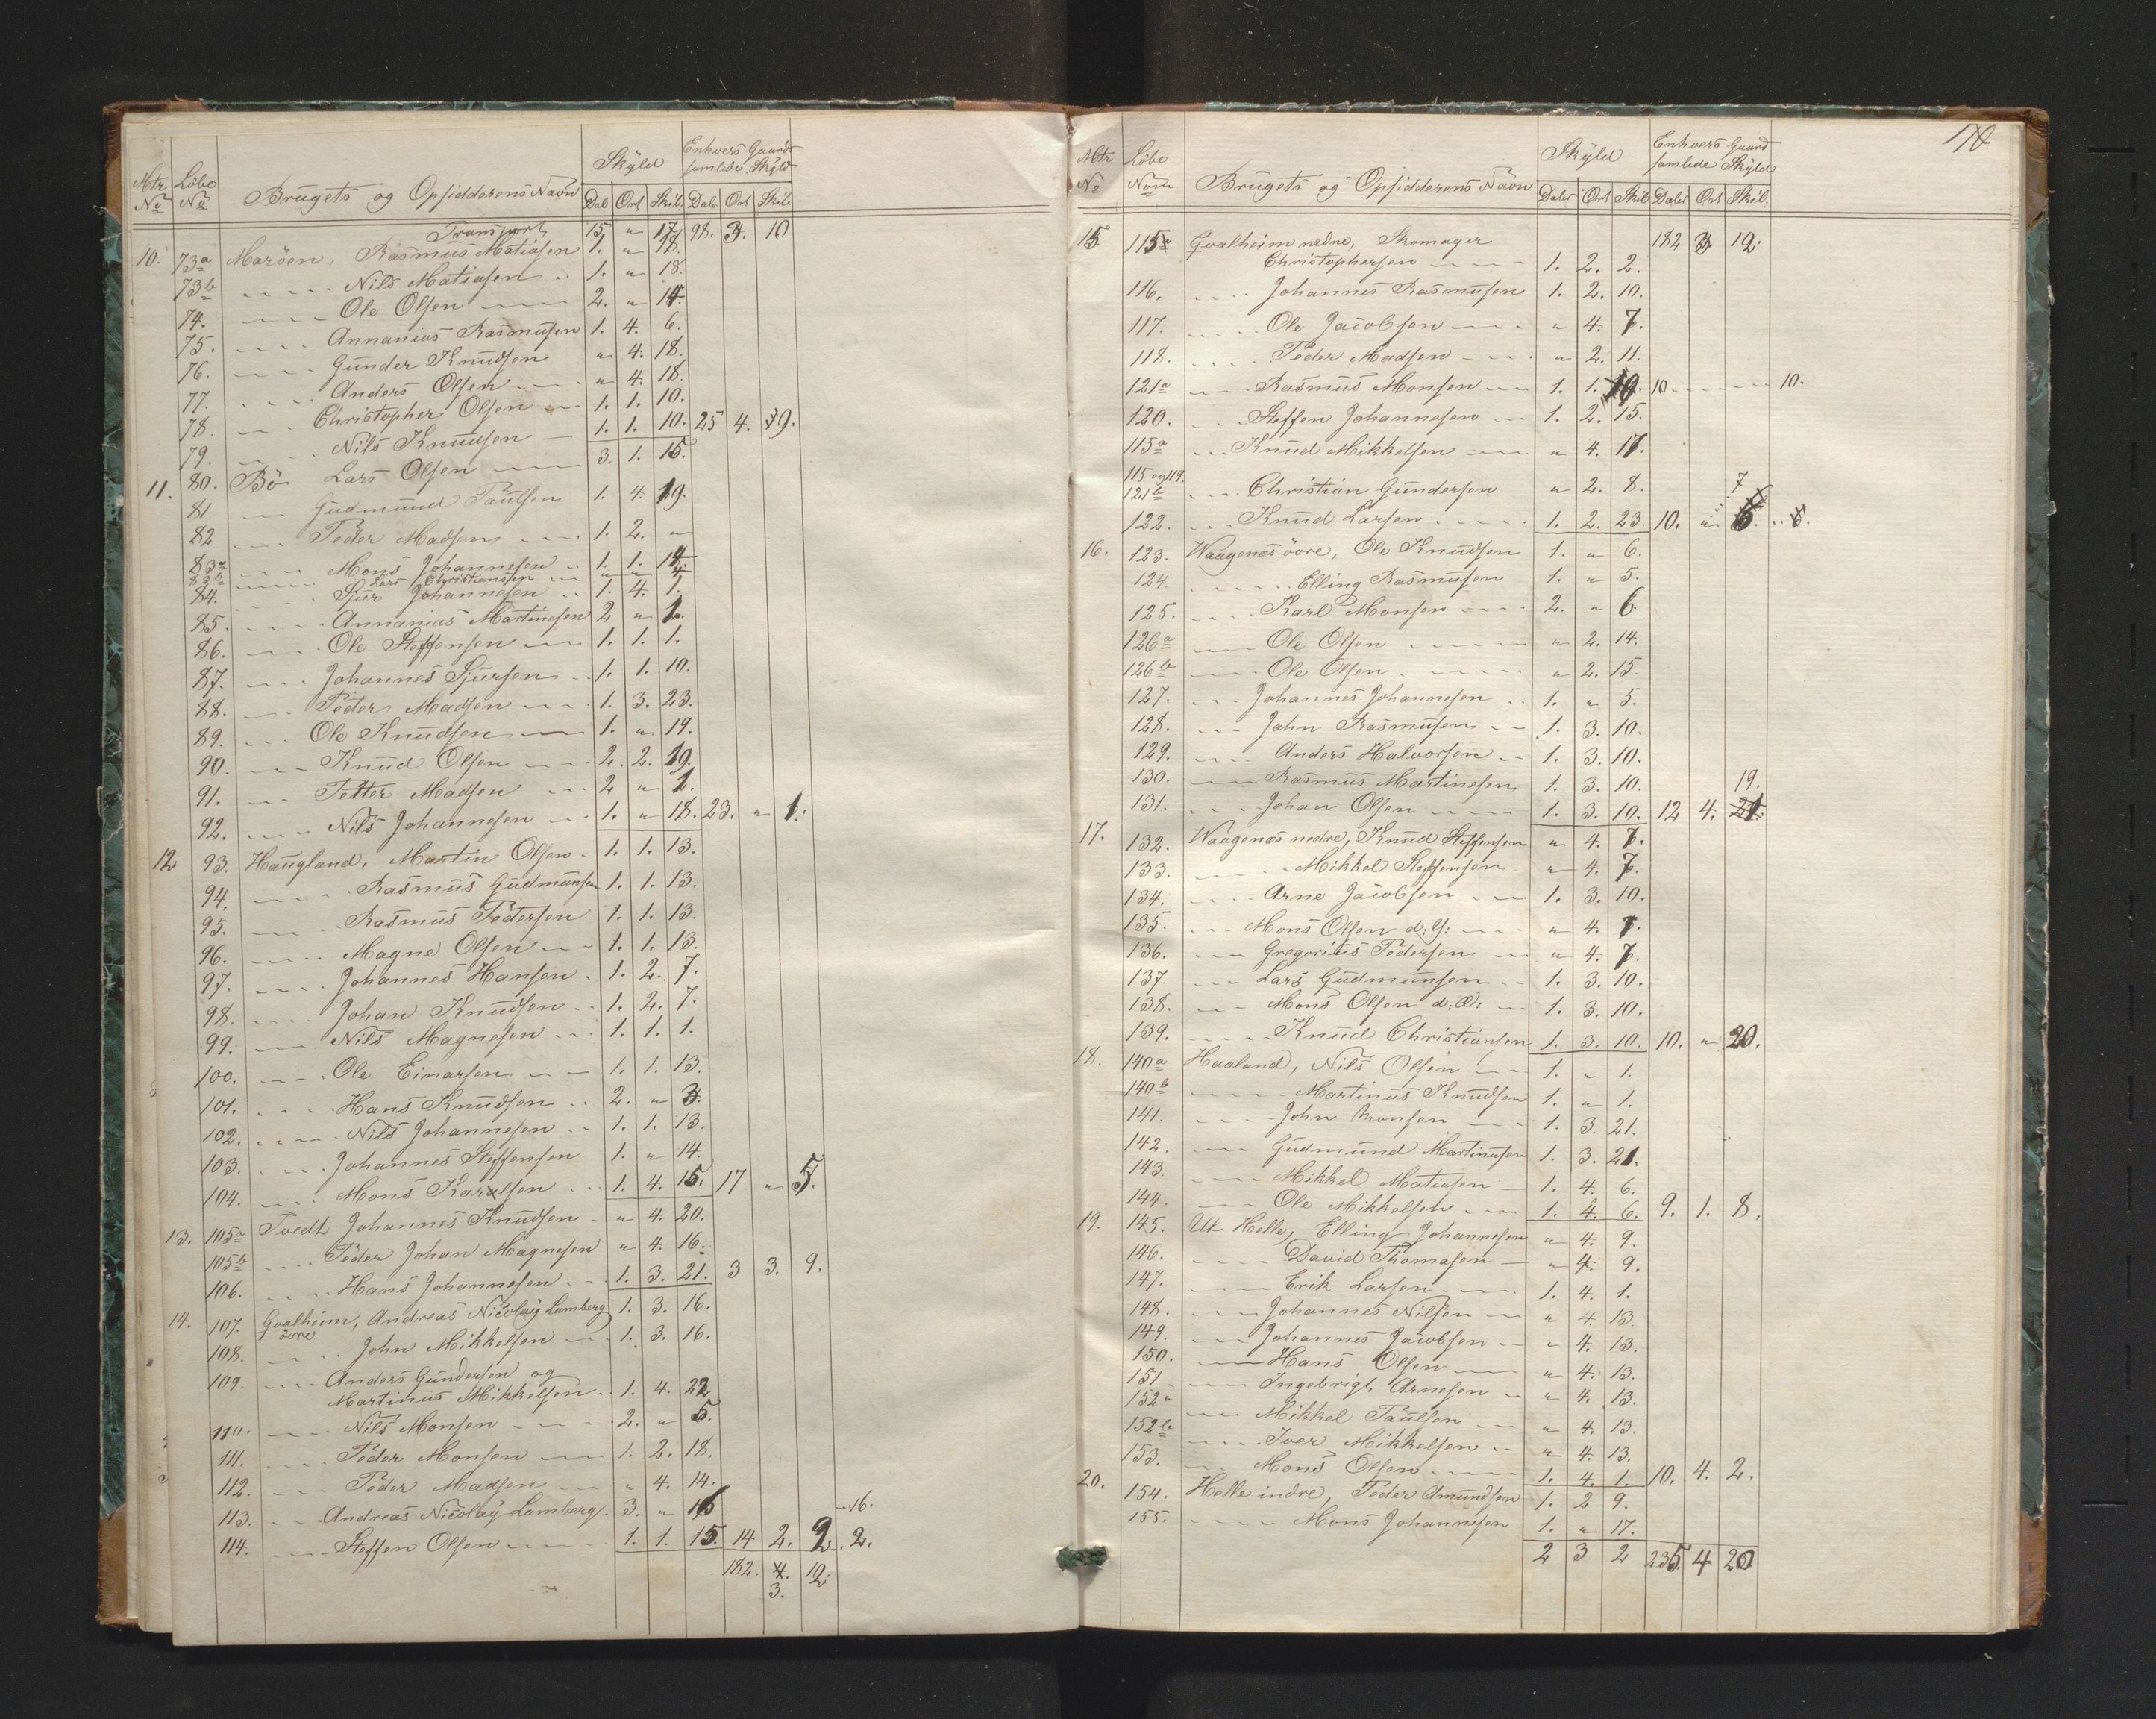 Mtr Löbe Skyld Enhvers Gaards
No No Brugets og Opsidderens Navn samlede Skyld
Dal. Ort Skil. Daler Ort Skil.
Transport 15 " 17 98. 3. 10
10. 73a Maröen, Rasmus Matiasen 1. " 18
73b Nils Matiasen 1. " 18.
74. Ole Olsen 2. " 14.
75. Annanias Rasmusen 1. 4. 6.
76. Gunder Knudsen " 4. 18.
77. Anders Olsen " 4. 18.
78. Christopher Olsen 1. 1. 10.
79. Nils Knudsen 1. 1. 10. 25 4. 19.
11. 80. Bö Lars Olsen 3. 1. 15.
81 Gudmund Paulsen 1. 4. 19.
82 Peder Madsen 1. 2. "
83a Mons Johannesen 1. 1. 14.
83b Lars Christiansen " " 4.
84. Sjur Johannesen 1. 4. 1.
85. Annanias Martinesen 2 " 1.
86. Ole Steffensen 1. 1. 1.
87. Johannes Sjursen 1. 1. 10.
88. Peder Madsen 1. 3. 23.
89. Ole Knudsen 1. " 19.
90. Knud Olsen 2. 2. 19.
91. Petter Madsen 2 " 1.
92. Nils Johannesen 1. " 18. 23. " 1.
12 93. Haugland, Martin Olsen 1. 1. 13.
94. Rasmus Gudmunsen 1. 1. 13.
95. Rasmus Pedersen 1. 1. 13.
96. Magne Olsen 1. 1. 13.
97. Johannes Hansen 1. 2. 7.
98. Johan Knudsen 1. 2. 7.
99. Nils Magnesen 1. 1. 1.
100. Ole Einarsen 1. 1. 13.
101. Hans Knudsen 2. " 3.
102. Nils Johannesen 1. 1. 13.
103. Johannes Steffensen 1. " 14.
104. Mons Karlsen 1. 4. 15. 17 " 5.
13. 105a Tvedt Johannes Knudsen " 4. 20.
105b Peder Johan Magnesen " 4. 16.
106. Hans Johannesen 1. 3. 21. 3 3. 9.
14. 107. Gvalheim, Andreas Nicolay Lamberg 1. 3. 16.
övre
108. John Mikkelsen 1. 3. 16.
109. Anders Gundersen og
Martinus Mikkelsen 1. 4. 22
110. Nils Monsen 2. " 5.
111. Peder Monsen 1. 2. 18.
112. Peder Madsen " 4. 14.
113. Andreas Nicolay Lamberg. 3. " 16 16.
114. Steffen Olsen 1. 1. 15. 14 2. 2. 2.
182. 4. 12.
3.
Mtr Löbe Skyld Enhvers Gaard
No Nom Brugets og Opsidderens Navn samlede Skyld
Daler Ort Skil Daler Ort Skil.
15 115a Gvalheim nedre, Skomager 182 3 12.
Christophersen 1. 2. 2.
116. Johannes Rasmusen 1. 2. 10.
117. Ole Jacobsen " 4. 7.
118. Peder Madsen " 2. 11.
121a Rasmus Monsen 1. 1. 10. 10 10.
120. Steffen Johannesen 1. 2. 15.
115a Knud Mikkelsen " 4. 17.
115 og 119.
121b Christian Gundersen " 2. 8. 7
122. Knud Larsen 1. 2. 23. 10. " 6. 8.
16. 123. Waagenes övre, Ole Knudsen 1. " 6.
124. Elling Rasmusen 1. " 5.
125. Karl Monsen 2. " 6
126a Ole Olsen " 2. 14.
126b Ole Olsen " 2. 15.
127. Johannes Johannesen 1. " 5.
128. Jahn Rasmusen 1. 3. 10.
129. Anders Halvorsen 1. 3. 10.
130. Rasmus Martinesen 1. 3. 10. 19.
131. Johan Olsen 1. 3. 10. 12 4. 21.
17. 132. Waagenes nedre, Knud Steffensen " 4. 7.
133. Mikkel Steffensen " 4. 7.
134. Arne Jacobsen 1. 3. 10.
135. Mons Olsen d: Y: " 4. 7.
136. Gregorius Pedersen " 4. 7.
137. Lars Gudmunsen 1. 3. 10.
138. Mons Olsen d: Æ: 1. 3. 10.
139. Knud Christiansen 1. 3. 10. 10. " 20.
18. 140a Haaland, Nils Olsen 1. " 1.
140b Martinus Knudsen 1. " 1.
141. John Monsen 1. 3. 21.
142. Gudmund Martinusen 1. 3. 21.
143. Mikkel Matiasen 1. 4. 6.
144. Ole Mikkelsen 1. 4. 6. 9. 1. 8.
19. 145. Ut Helle, Elling Johannesen " 4. 9.
146. David Thomasen " 4. 9.
147. Erik Larsen 1. 4. 1.
148. Johannes Nilsen " 4. 13.
149. Johannes Jacobsen " 4. 13.
150. Hans Olsen " 4. 13.
151 Ingebrigt Arnesen " 4. 13.
152a Mikkel Paulsen " 4. 13.
152b Iver Mikkelsen " 4. 13.
153. Mons Olsen 1. 4. 1. 10. 4. 2.
20. 154. Helle indre, Peder Amundsen 1. 2 9.
155. Mons Johannesen 1. " 17.
2 3 2 235 4 20